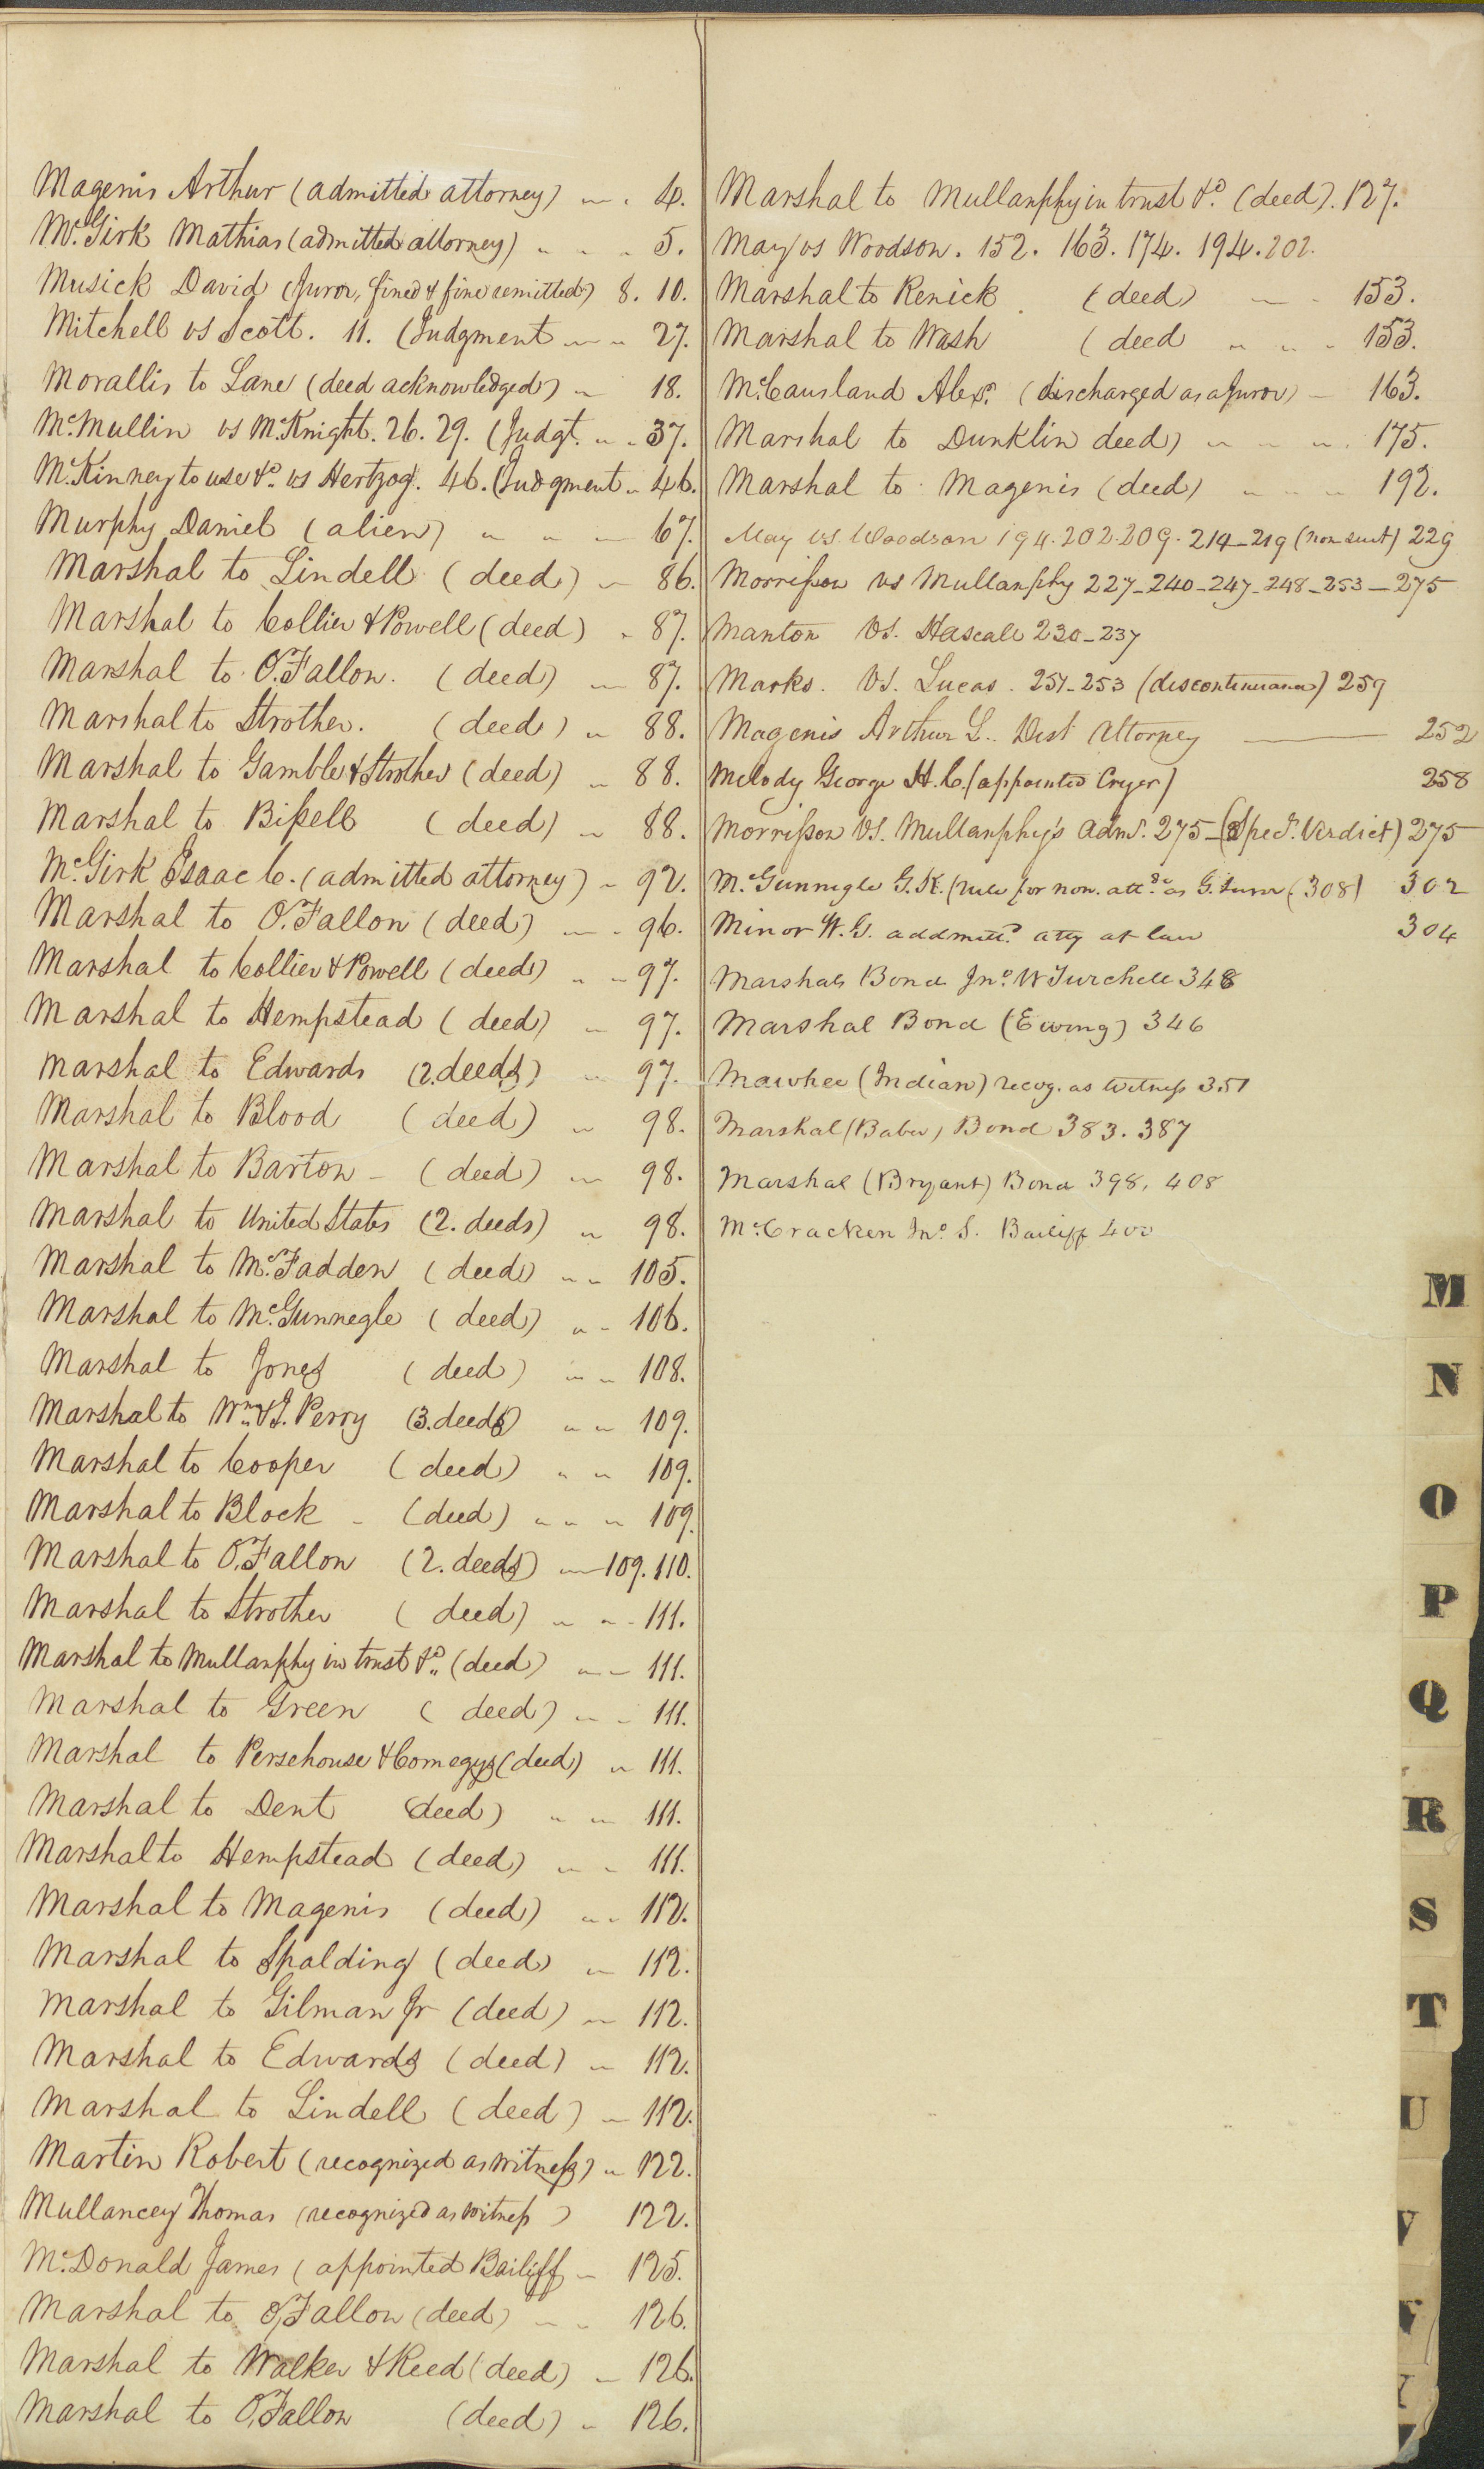 Magenis Arthur (admitted attorney) 4.
McGirk Mathias (admitted attorney) 5.
Musick David (Juror, fined & fine remitted) 8. 10.
Mitchell vs Scott. 11. (Judgment 27.
Morallis to Lane (deed acknowledged) 18.
McMullin vs McKnight. 26. 29. (Judgt. 37.
McKinney to use &c. vs Hertzog. 46. (Judgment 46.
Murphy Daniel (alien) 67.
Marshal to Lindell (deed) 86.
Marshal to Collier & Powell (deed) 87.
Marshal to O'Fallon. (deed) 87.
Marshal to Strother. (deed) 88.
Marshal to Gamble & Strother (deed) 88.
Marshal to Bissell (deed) 88.
McGirk Isaac C. (admitted attorney) 92.
Marshal to O'Fallon (deed) 96.
Marshal to Collier & Powell (deed) 97.
Marshal to Hempstead (deed) 97.
Marshal to Edwards (2. deeds) 97.
Marshal to Blood (deed) 98.
Marshal to Barton (deed) 98.
Marshal to United States (2. deeds) 98.
Marshal to McFadden (deed) 105.
Marshal to McGunnegle (deed) 106.
Marshal to Jones (deed) 108.
Marshal to Wm. & J. Perry (3. deeds) 109.
Marshal to Cooper (deed) 109.
Marshal to Block (deed) 109.
Marshal to O'Fallon (2. deeds) 109. 110.
Marshal to Strother (deed) 111.
Marshal to Mullanphy in trust &c. (deed) 111.
Marshal to Green (deed) 111.
Marshal to Persehouse & Comegys (deed) 111.
Marshal to Dent (deed) 111.
Marshal to Hempstead (deed) 111.
Marshal to Magenis (deed) 112.
Marshal to Spalding (deed) 112.
Marshal to Gilman Jr (deed) 112.
Marshal to Edwards (deed) 112.
Marshal to Lindell (deed) 112.
Martin Robert (recognized as witness) 122.
Mullancey Thomas (recognized as witness) 122.
McDonald James (appointed Bailiff 125.
Marshal to O'Fallon (deed) 126.
Marshal to Walker & Reed (deed) 126.
Marshal to O'Fallon (deed) 126.
Marshal to Mullanphy in trust &c. (deed). 127.
May vs Woodson. 152. 163. 174. 194. 202.
Marshal to Renick (deed) 153.
Marshal to Wash (deed 153.
McCausland Alexr. (discharged as a Juror) 163.
Marshal to Dunklin deed) 175.
Marshal to Magenis (deed) 192.
May vs. Woodson 194. 202. 209. 214-219 (non suit) 229
Morrisson vs Mullanphy 227-240-247-248-253-275
Manton vs. Hascall 230-237
Marks. vs. Lucas. 251-253 (discontinuance) 259
Magenis Arthur L. Dist Attorney 252
Melody George H. C. (appointed Cryer) 258
Morrisson vs. Mullanphy's Admr. 275-(Specl. Verdict) 275
McGunnegle G. K. (rule for non. attce. as G. Juror (308) 302
Minor W. G. addmittd. atty at law 304
Marshals Bond Jno. W Turchell 348
Marshal Bond (Ewing) 346
Mawhee (Indian) recog. as witness 351
Marshal (Baber) Bond 383. 387
Marshal (Bryant) Bond 398. 408
McCracken Jno. S. Bailiff 400
M
N
O
P
Q
R
S
T
U
V